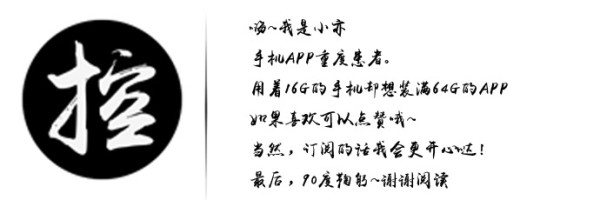 控
嗨~我是小亦
手机APP重度患者。
用着16G的手机却想装满64G的APP
如果喜欢可以点赞哦~
当然，订阅的话我会更开心哒！
最后，90度鞠躬~谢谢阅读